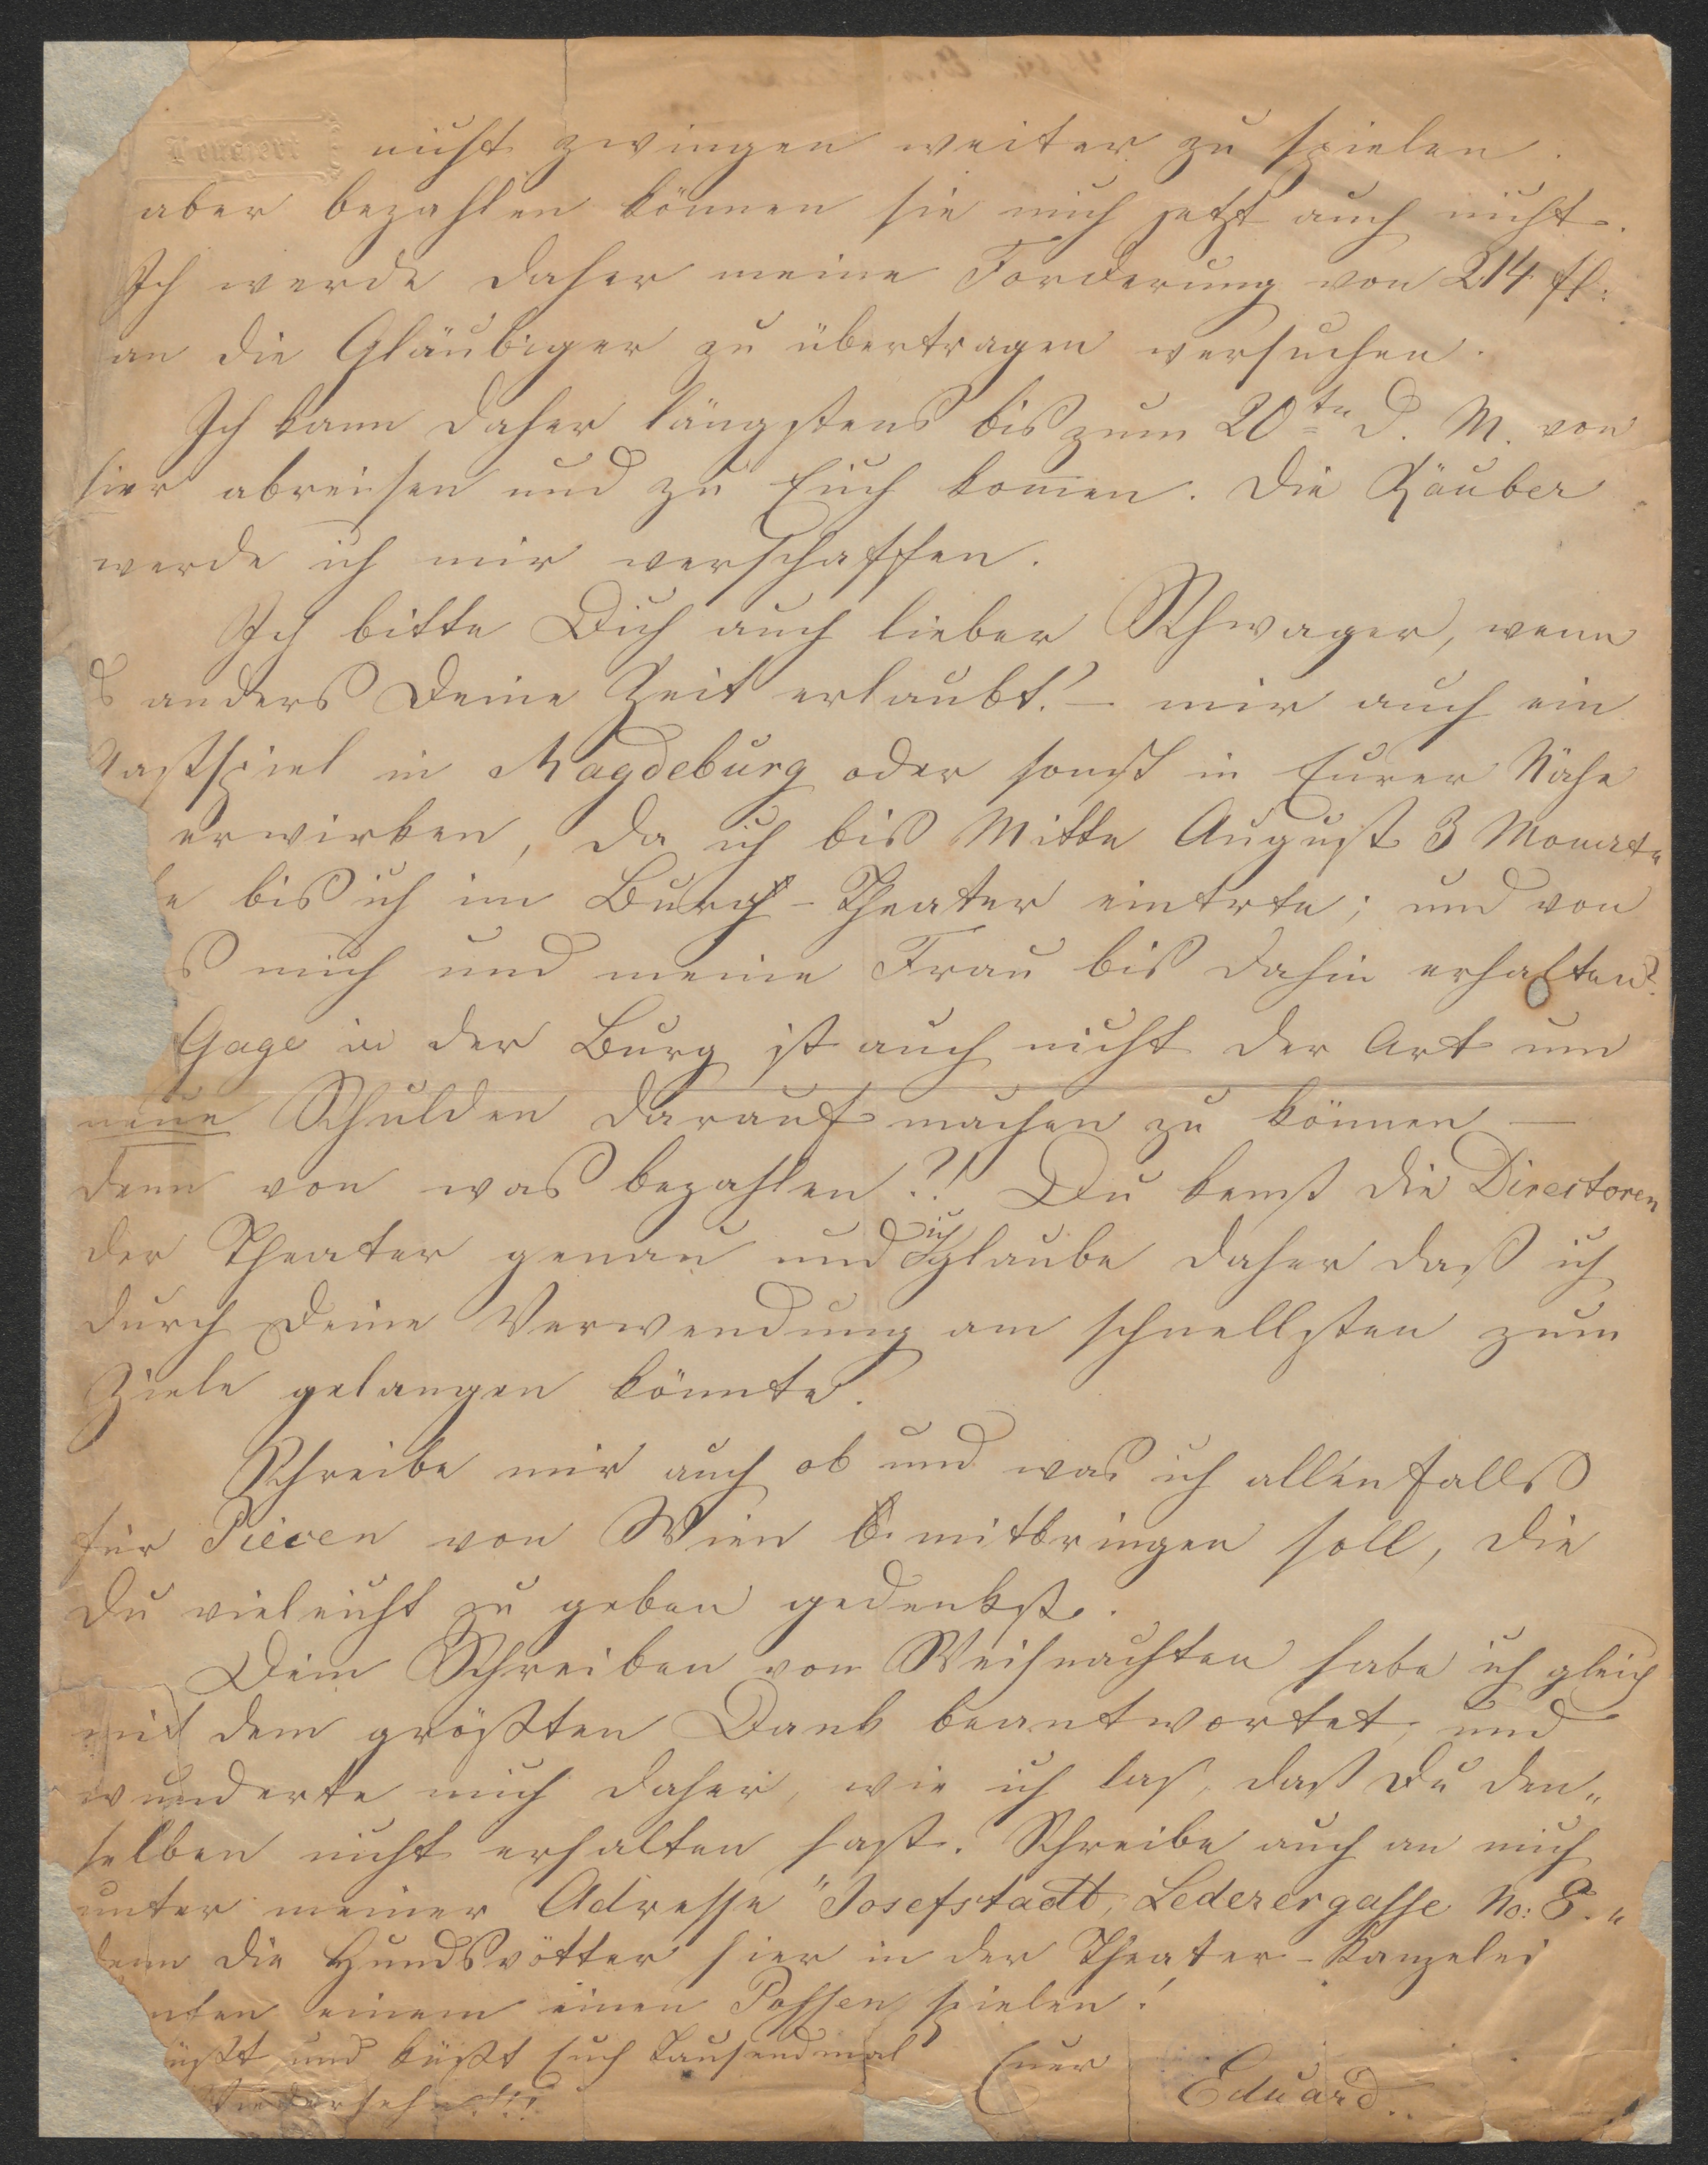 nicht zwingen weiter zu spielen.
aber bezahlen können sie mich jetzt auch nicht.
Ich werde daher meine Forderung von 214 fl:
an die Gläubiger zu übertragen versuchen.
Ich kann daher längstens bis zum 20tn d. M. von
hier abreisen und zu Euch kommen. Die Räuber
werde ich mir verschaffen.
Ich bitte Dich auch lieber Schwager, wenn
s anders Deine Zeit erlaubt! – mir auch ein
Gastspiel in Magdeburg oder sonst in Eurer Nähe
erwirken, da ich bis Mitte August 3 Monate
e bis ich im Burg-Theater eintrte; und von
s mich und meine Frau bis dahin erhalten?
Gage in der Burg ist auch nicht der Art um
neue Schulden darauf machen zu können —
denn von was bezahlen?! Du kenst die Directoren
der Theater genau und ich glaube daher daß ich
durch Deine Verwendung am schnellsten zum
Ziele gelangen könnte.
Schreibe mir auch ob und was ich allenfalls
für Piecen von Wien mitbringen soll, die
Du vieleicht zu geben gedenkst.
Dein Schreiben von Weihnachten habe ich gleich
mit dem größten Dank beantwortet, und
wunderte mich daher, wie ich las, daß Du den„
selben nicht erhalten hast. Schreibe auch an mich
unter meiner Adresse "Josefstadt, Lederergasse No: 8."
denn die Hundsvötter hier in der Theater-Kanzelei
einem einen Possen spielen!
üßt und küßt Euch tausendmal Euer
Eduard.
Wiedersehn!!!